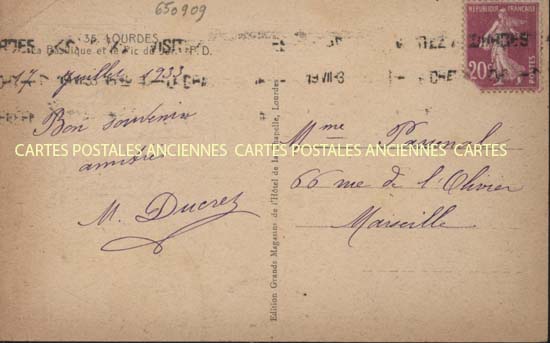 650909
35. LOURDES
La Basilique et le Pic du P.D.
VISITEZ LOURDES
19 VII-3
REPUBLIQUE FRANÇAISE
20c
POSTES
17 Juillet 1933
Bon souvenir
amitiés
M. Ducret
Edition Grands Magasins de l'Hôtel de la Chapelle, Lourdes
Mme
66 rue de l'Olivier
Marseille
CARTES POSTALES ANCIENNES CARTES POSTALES ANCIENNES CARTES